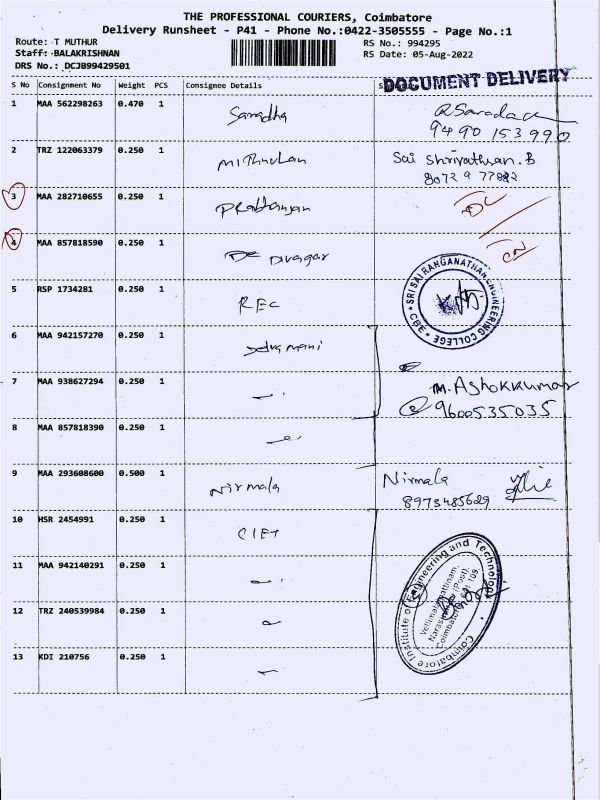 THE PROFESSIONAL COURIERS, Coimbatore
Delivery Runsheet - P41 - Phone No.:0422-3505555 - Page No.:1
Route: T MUTHUR
RS No.: 994295
Staff: BALAKRISHNAN
RS Date: 05-Aug-2022
DRS No.: DCJB99429501
DOCUMENT DELIVERY
S No Consignment No Weight PCS Consignee Details
1 MAA 562298263 0.470 1 Saradha
9490153990
2 TRZ 122063379 0.250 1 Mithulan Sai Shrivathsan.B
3 MAA 282710655 0.250 1
4 MAA 857818590 0.250 1 Divagar
5 RSP 1734281 0.250 1 REC
SRI SAI RANGANATHAN ENGINEERING COLLEGE
CBE
6 MAA 942157270 0.250 1 Selvamani
7 MAA 938627294 0.250 1 M. Ashokkumar
9600535035
8 MAA 857818390 0.250 1
9 MAA 293608600 0.500 1 Nirmala Nirmala
8973485629
10 HSR 2454991 0.250 1 CIET
11 MAA 942140291 0.250 1
12 TRZ 240539984 0.250 1
13 KDI 210756 0.250 1
Coimbatore Institute of Engineering and Technology
Vellimalaipattinam,
Narasipuram (Post)
Coimbatore - 641 109.